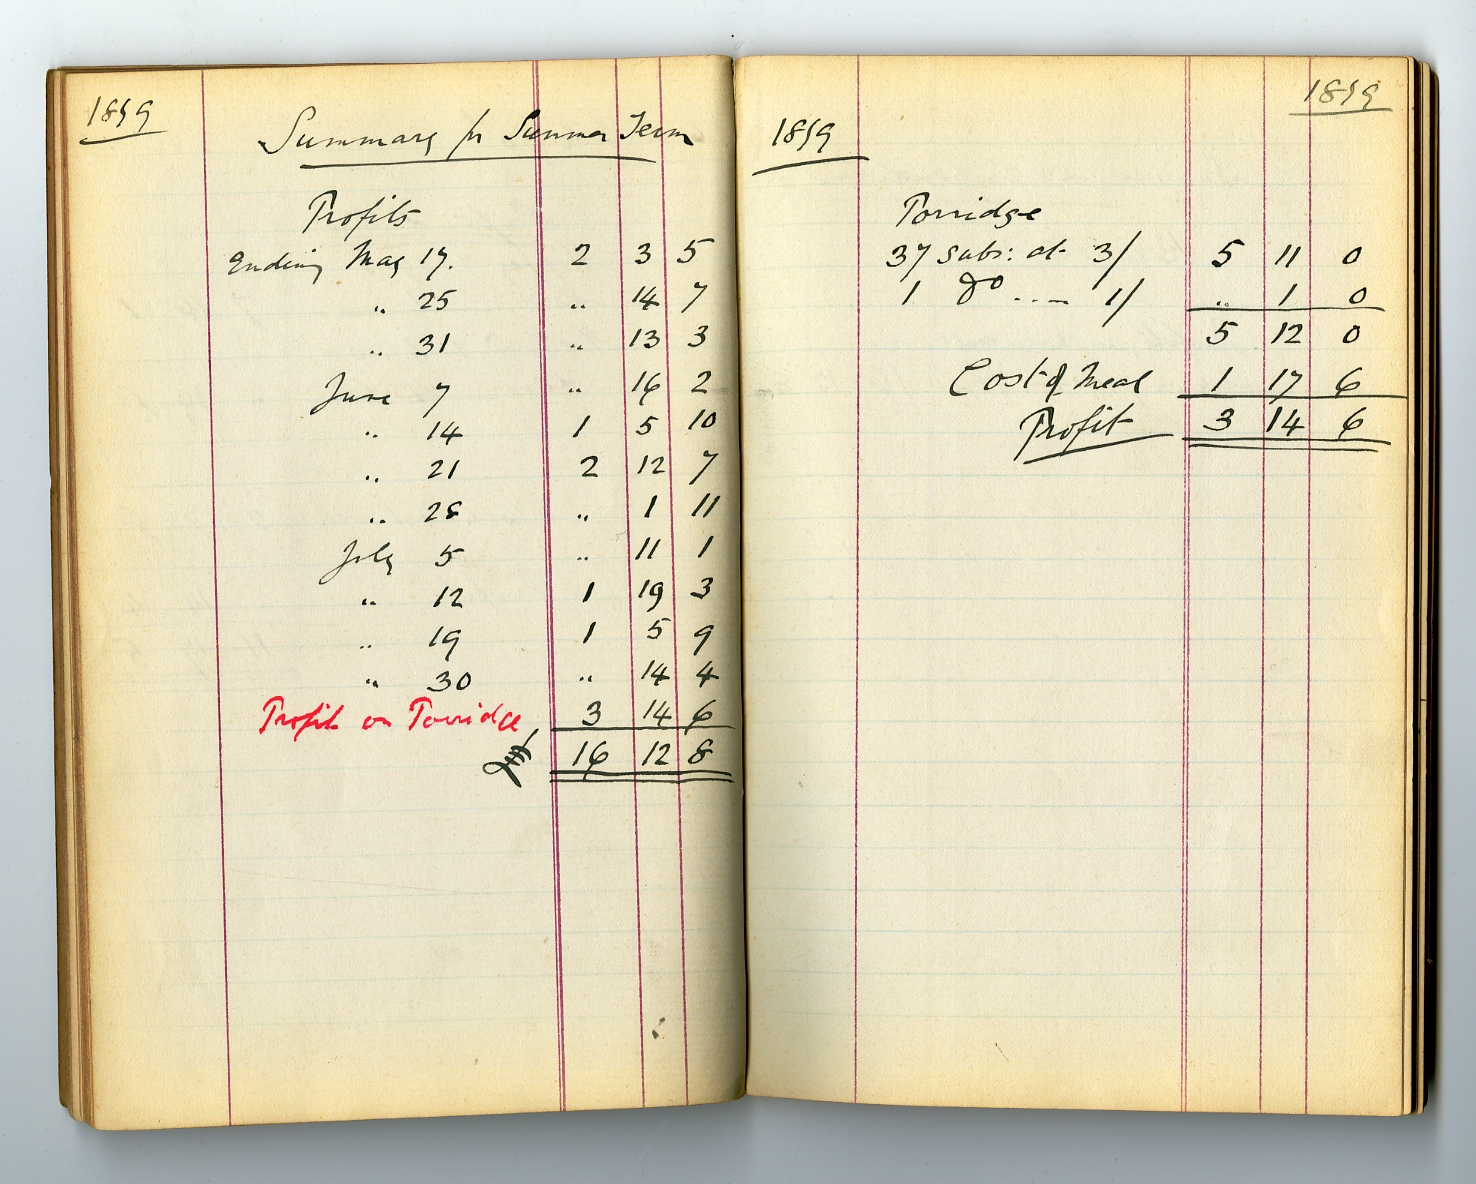 1899
Summary for Summer Term
Profits
Ending May 17. 2 3 5
" 25 " 14 7
" 31 " 13 3
June 7 " 16 2
" 14 1 5 10
" 21 2 12 7
" 28 " 1 11
July 5 " 11 1
" 12 1 19 3
" 19 1 5 9
" 30 " 14 4
Profit on Porridge 3 14 6
16 12 8
1899
1899
Porridge
37 subs: at 3/ 5 11 0
1 do .... 1/ " 1 0
5 12 0
Cost of Meal 1 17 6
Profit 3 14 6